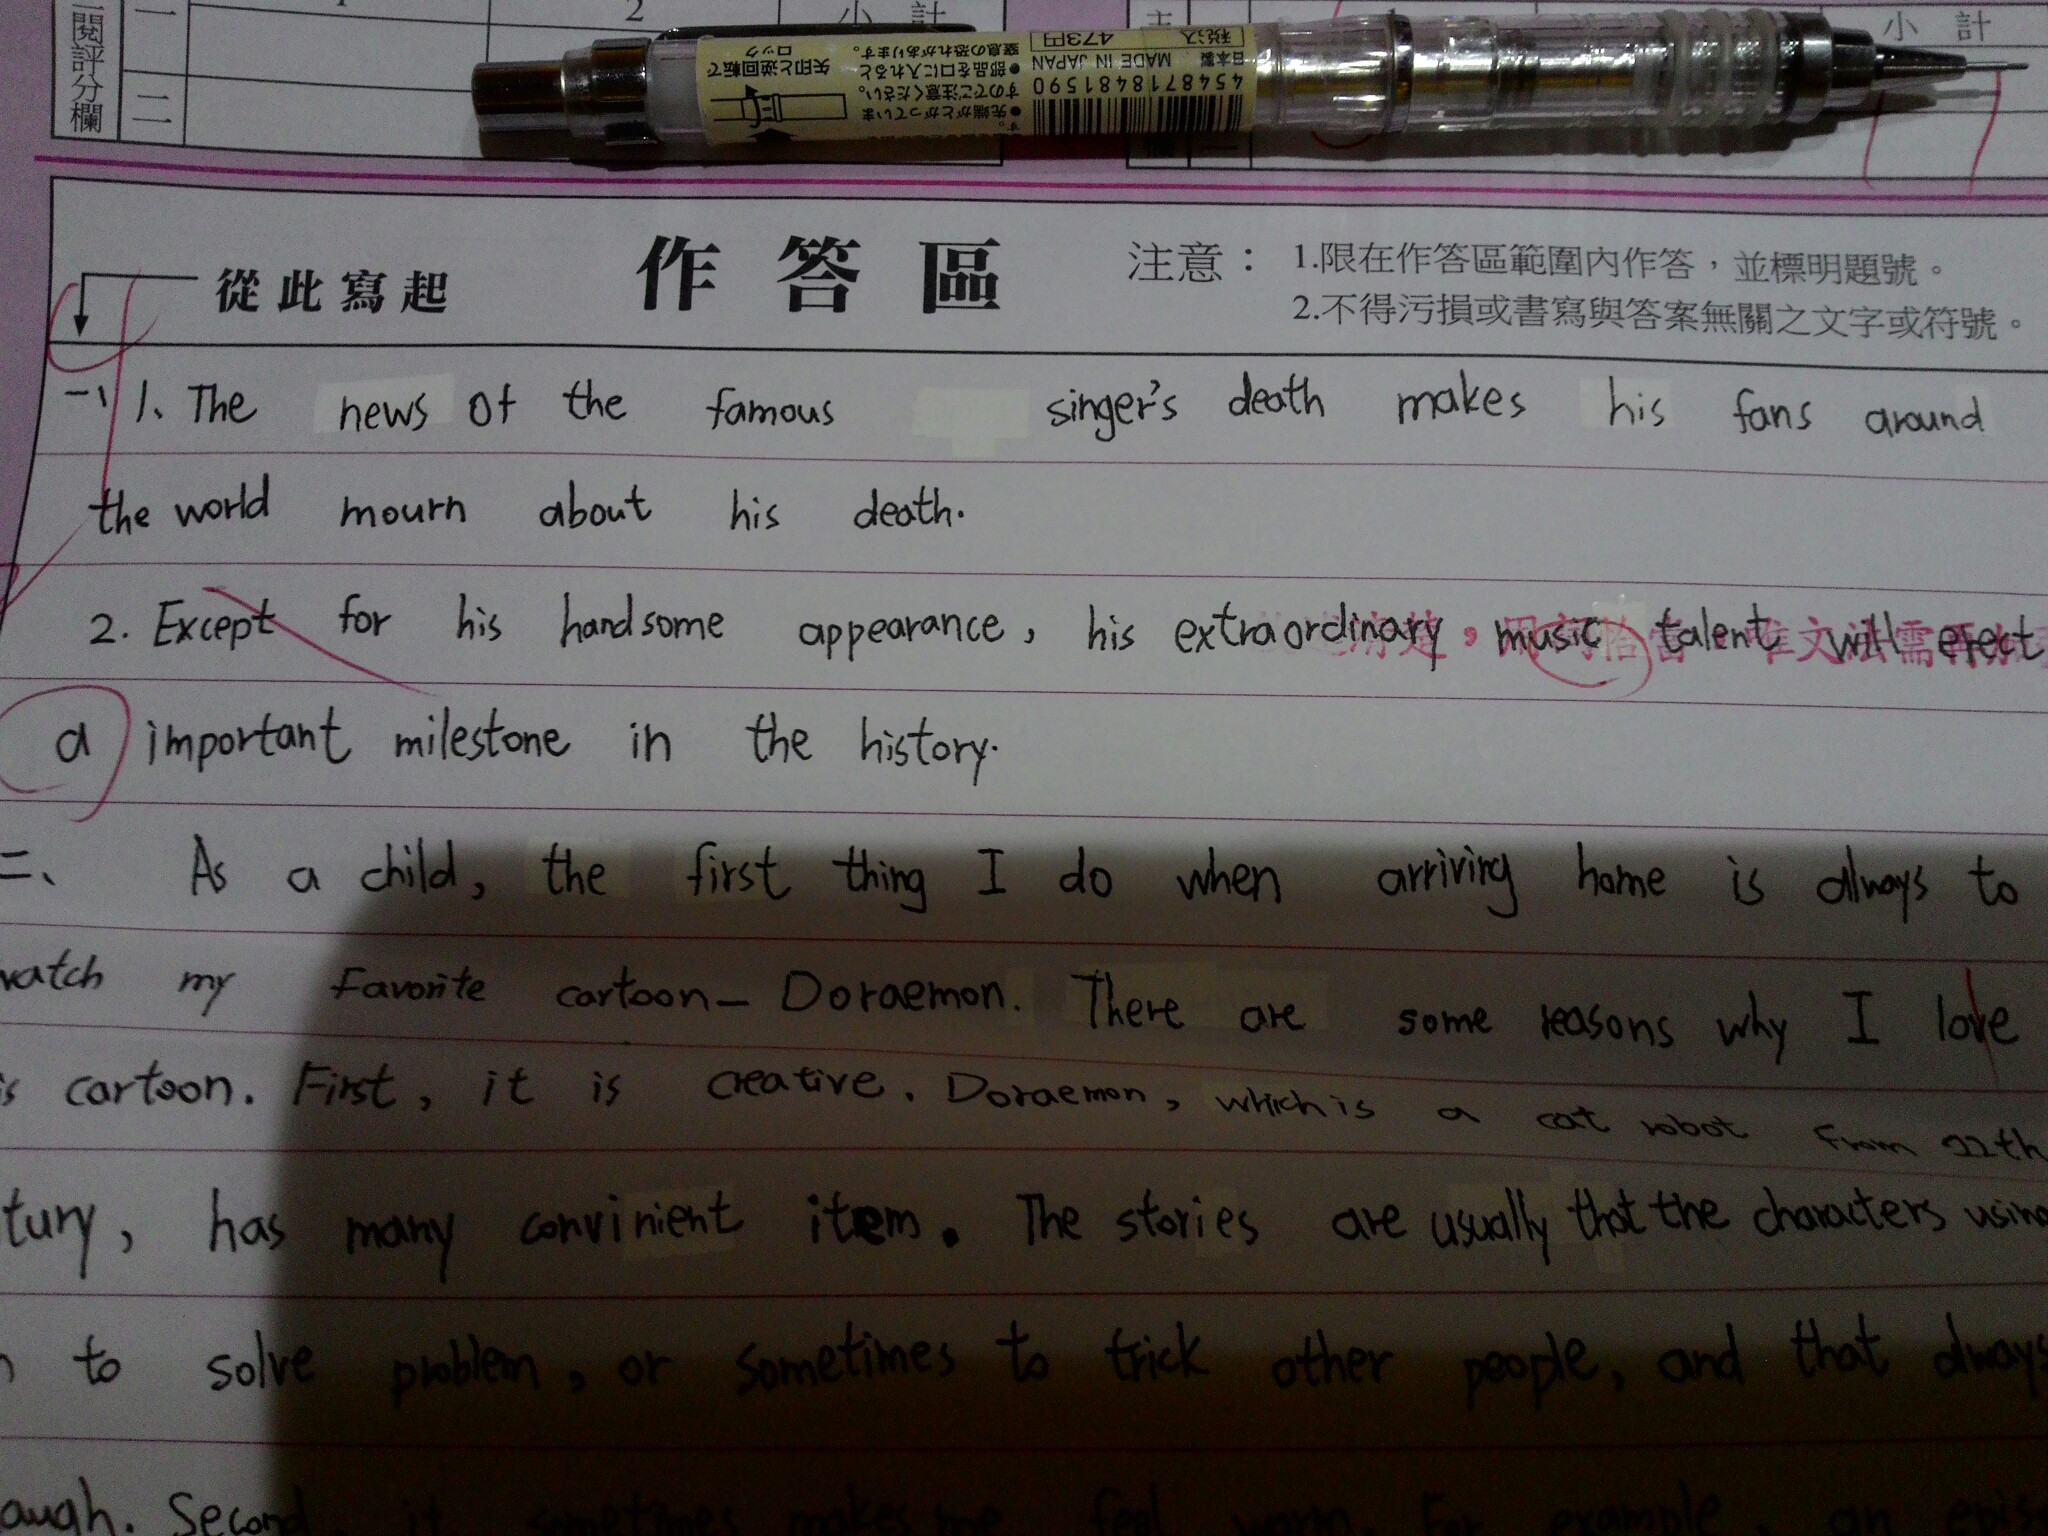 二閱評分欄
一
二
2
小 計
小 計
矢印と逆回転で
ロック
●先端がとがっていま
すのでご注意ください。
●部品を口に入れると
窒息の恐れがあります。
4548718481590
日本製 MADE IN JAPAN
税込 473円
從此寫起
作答區
注意：
1.限在作答區範圍內作答，並標明題號。
2.不得污損或書寫與答案無關之文字或符號。
一、1. The news of the famous singer's death makes his fans around
the world mourn about his death.
2. Except for his handsome appearance, his extraordinary music talent will erect
a important milestone in the history.
二、 As a child, the first thing I do when arriving home is always to
watch my favorite cartoon— Doraemon. There are some reasons why I love
is cartoon. First, it is creative. Doraemon, which is a cat robot from 22th
tury, has many convinient item. The stories are usually that the characters using
to solve problem, or sometimes to trick other people, and that always
augh. Second, it sometimes makes me feel warm. For example, an